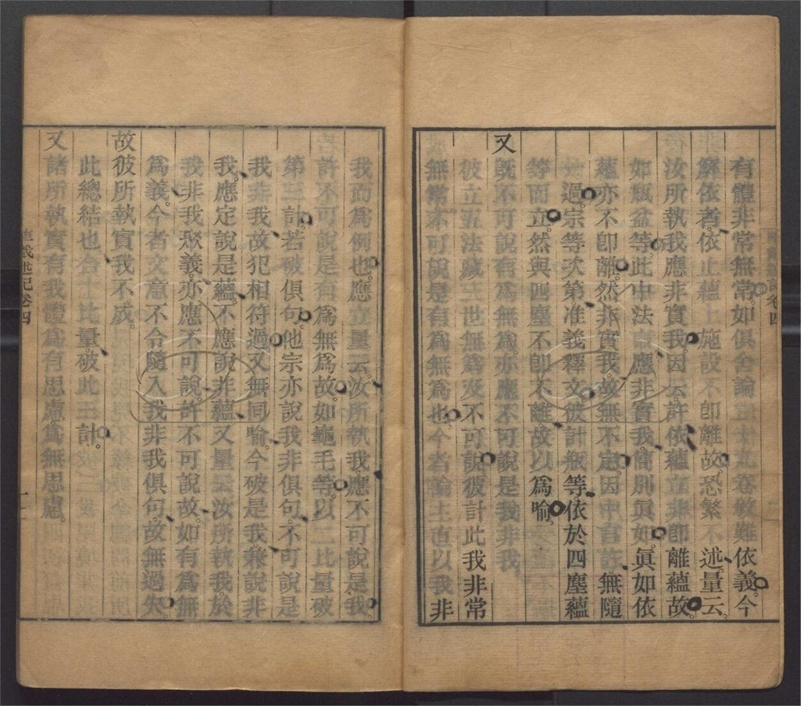 有體非常無常如俱舍論三十九卷敘難依義今
解依者依止蘊上施設不卽離故恐繁不述量云
汝所執我應非實我因云許依蘊立非卽離蘊故
如瓶盆等此中法應非實我簡別眞如眞如依
蘊亦不卽離然非實我故無不定因中言許無隨
過宗等次第准義釋文彼計瓶等依於四塵蘊
等而立然與四塵不卽不離故以爲喻
又旣不可說有爲無爲亦應不可說是我非我
彼立五法藏三世無爲及不可說彼計此我非常
無常亦可說是有爲無爲也今者論主直以我非
我而爲例也應立量云汝所執我應不可說是我
許不可說是有爲無爲故如龜毛等以二比量破
第三計若破俱句他宗亦說我非俱句不可說是
我非我故犯相符過又無同喻今破是我兼說非
我應定說是蘊不應說非蘊又量云汝所執我於
我非我聚義亦應不可說許不可說故如有爲無
爲義今者文意不令隨入我非我俱句故無過失
故彼所執實我不成
此總結也合十比量破此三計
又諸所執實有我體爲有思慮爲無思慮
述記卷四